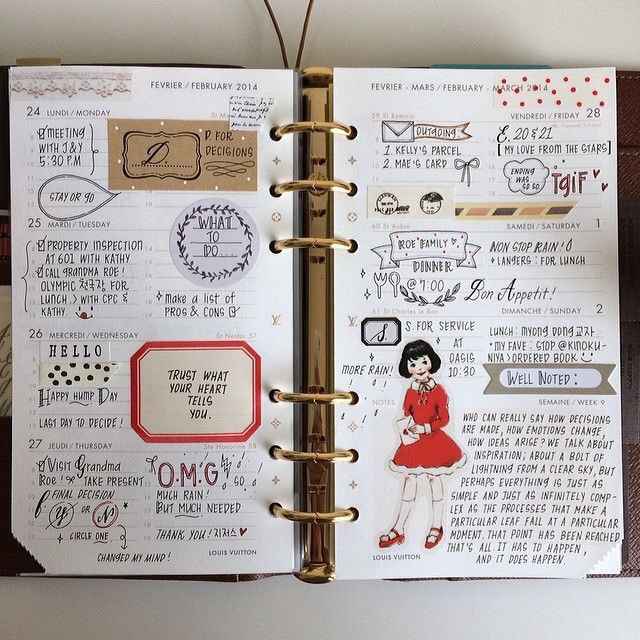 FEVRIER / FEBRUARY 2014
24 LUNDI / MONDAY
MEETING
WITH J&Y
5:30 P.M
D.
D. FOR
DECISIONS
STAY OR GO
25 MARDI / TUESDAY
PROPERTY INSPECTION
AT 601 WITH KATHY
CALL GRANDMA ROE!
OLYMPIC 천국 FOR
LUNCH > WITH CPC &
KATHY.
WHAT
TO
DO....
make a list of
PROS & CONS
26 MERCREDI / WEDNESDAY
St Nestor 57
HELLO
HAPPY HUMP DAY
LAST DAY TO DECIDE!
TRUST WHAT
YOUR HEART
TELLS
YOU.
27 JEUDI / THURSDAY
Ste Honorine 58
VISIT Grandma
Roe! TAKE PRESENT
FINAL DECISION
Y OR N
CIRCLE ONE
CHANGED MY MIND!
O.M.G
SO
MUCH RAIN!
BUT MUCH NEEDED
THANK YOU! 지저스
LOUIS VUITTON
FEVRIER - MARS / FEBRUARY - MARCH 2014
59 St Romain
VENDREDI / FRIDAY 28
OUTGOING:
1. KELLY'S PARCEL
2. MAE'S CARD
E. 20 & 21
[MY LOVE FROM THE STARS]
ENDING
WAS
SO SO
TGIF
60 St Aubin
SAMEDI / SATURDAY 1
"ROE" FAMILY
DINNER
@ 7:00
NON STOP RAIN!
LANGERS: FOR LUNCH
Bon Appetit!
61 St Charles le Bon
DIMANCHE / SUNDAY 2
S.
S. FOR SERVICE
AT
OASIS
10:30
MORE RAIN!
LUNCH: MYONG DONG 교자
MY FAVE: STOP @ KINOKU-
NIYA > ORDERED BOOK
WELL NOTED:
NOTES
SEMAINE / WEEK 9
WHO CAN REALLY SAY HOW DECISIONS
ARE MADE, HOW EMOTIONS CHANGE,
HOW IDEAS ARISE? WE TALK ABOUT
INSPIRATION; ABOUT A BOLT OF
LIGHTNING FROM A CLEAR SKY, BUT
PERHAPS EVERYTHING IS JUST AS
SIMPLE AND JUST AS INFINITELY COMP-
LEX AS THE PROCESSES THAT MAKE A
PARTICULAR LEAF FALL AT A PARTICULAR
MOMENT. THAT POINT HAS BEEN REACHED
THAT'S ALL. IT HAS TO HAPPEN,
AND IT DOES HAPPEN.
LOUIS VUITTON